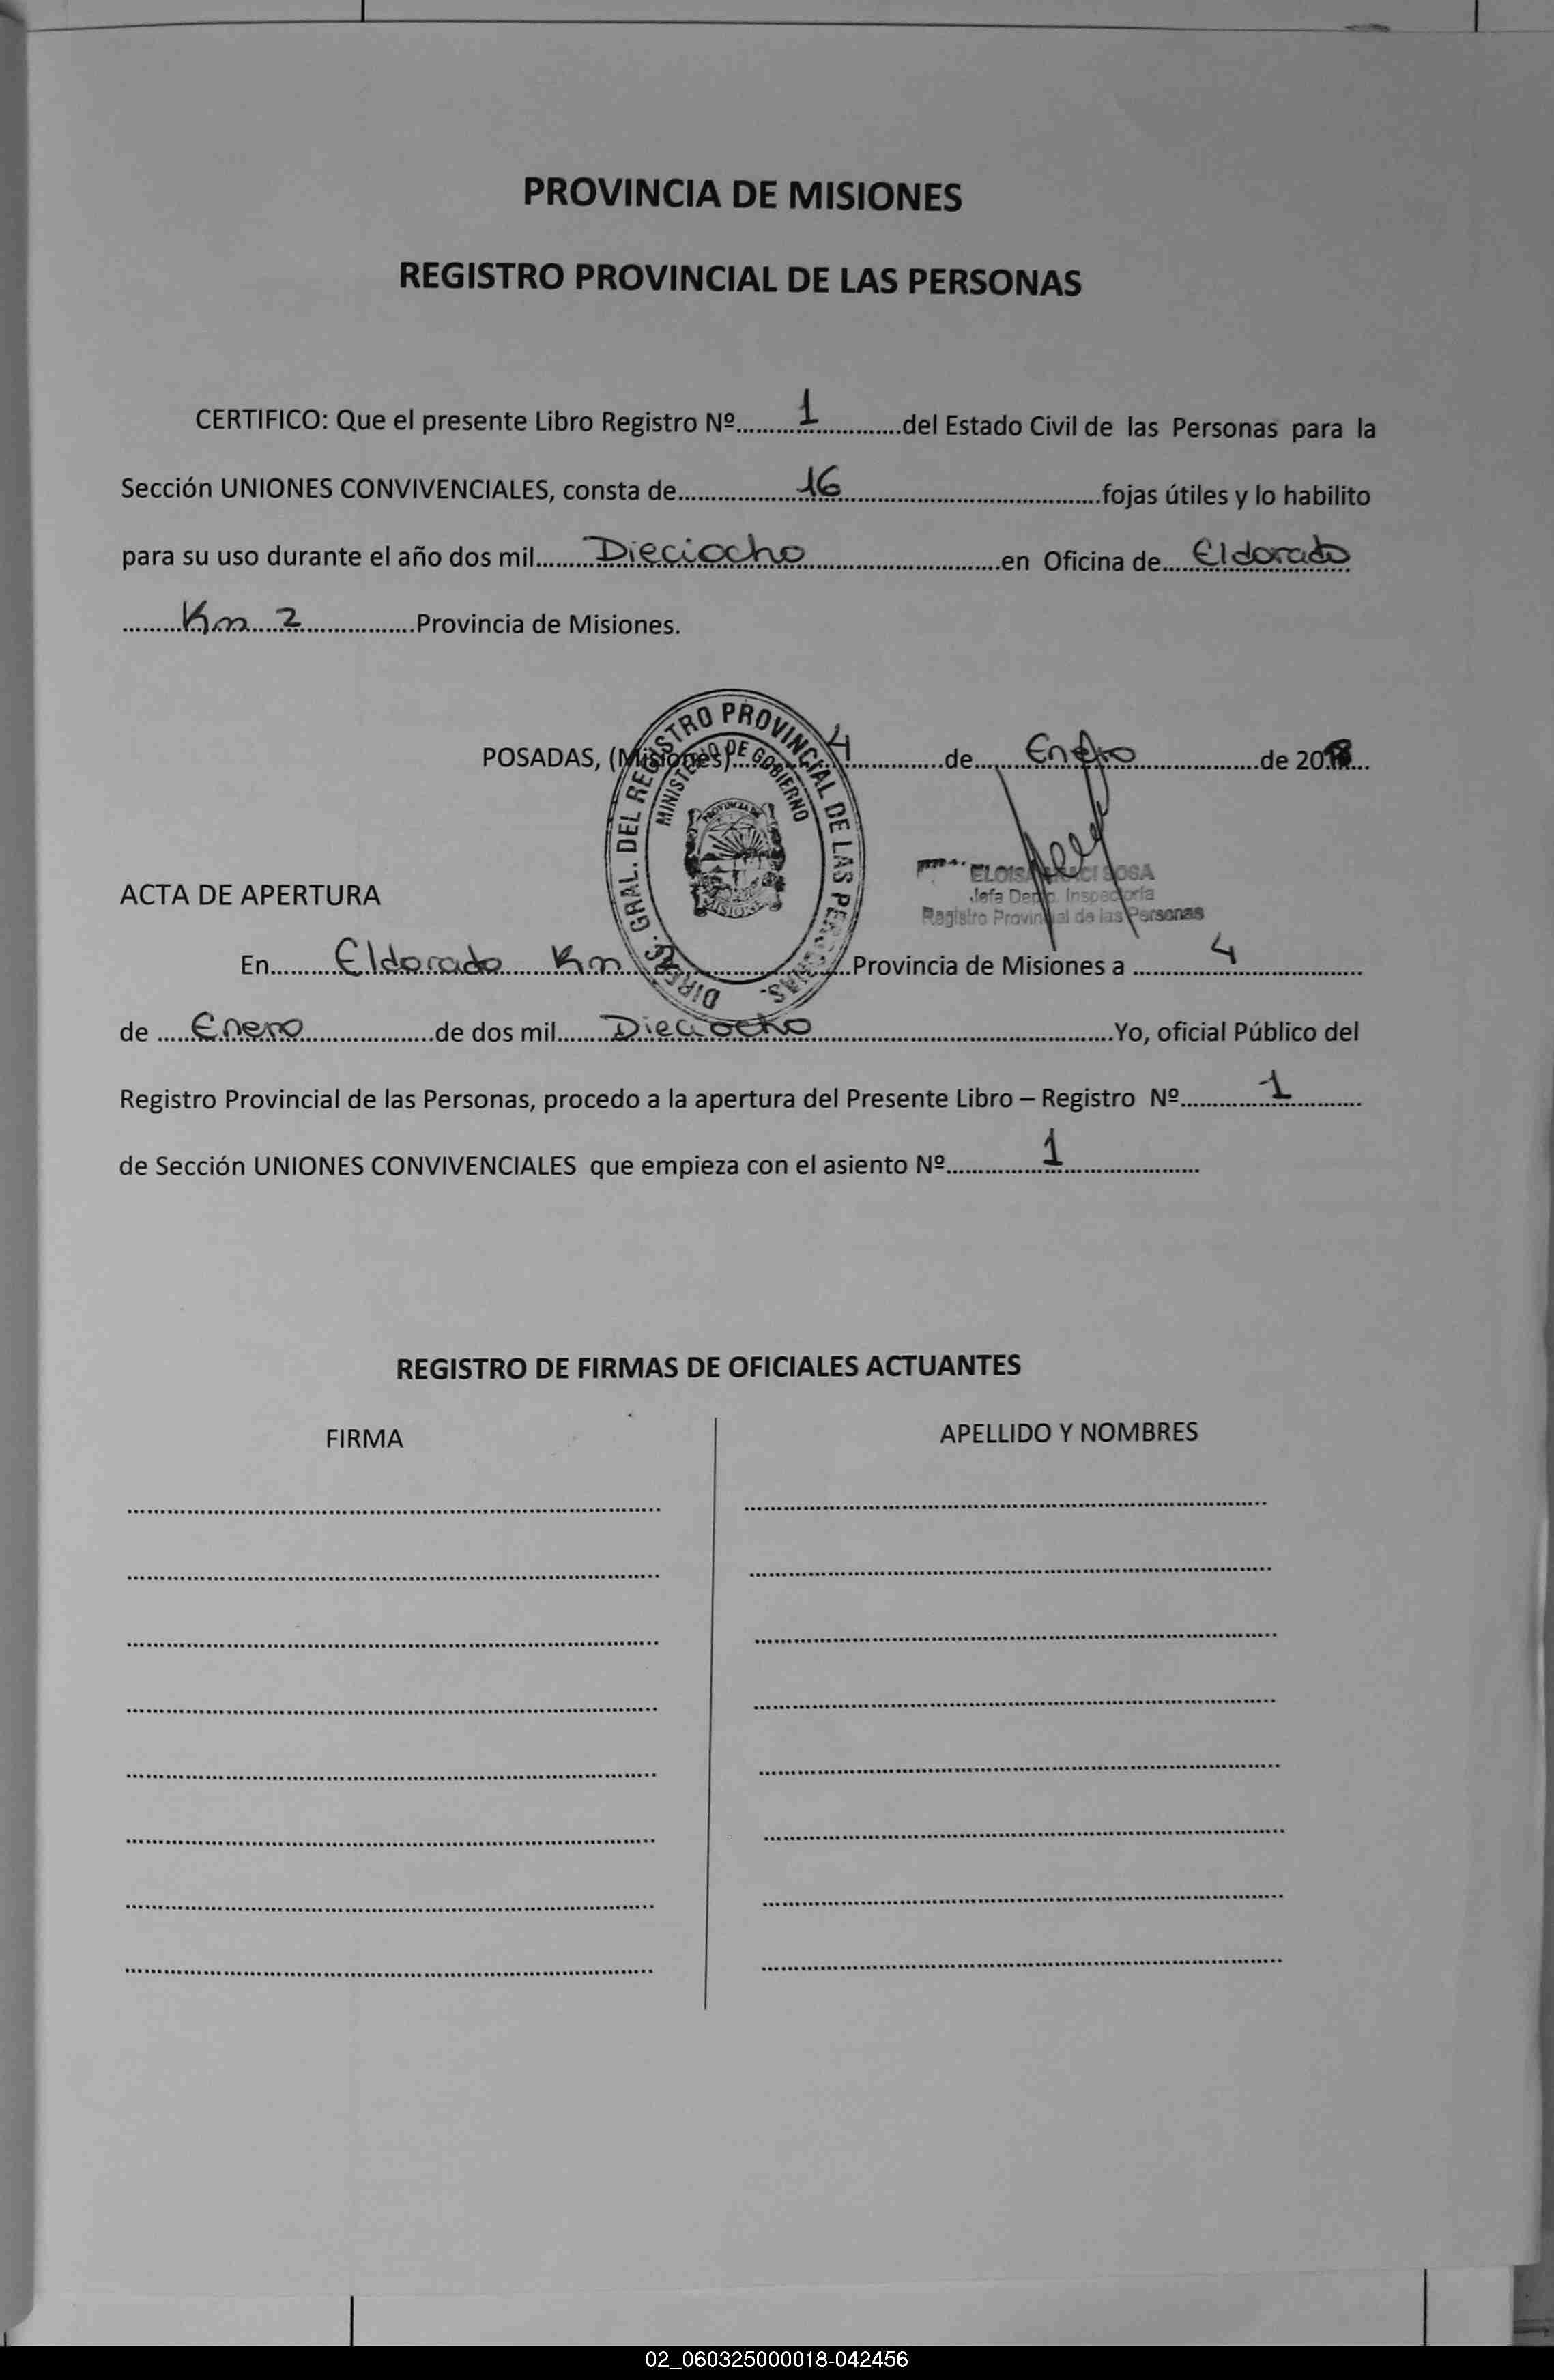 PROVINCIA DE MISIONES
REGISTRO PROVINCIAL DE LAS PERSONAS
CERTIFICO: Que el presente Libro Registro Nº 1 del Estado Civil de las Personas para la
Sección UNIONES CONVIVENCIALES, consta de 16 fojas útiles y lo habilito
para su uso durante el año dos mil Dieciocho en Oficina de Eldorado
Km 2 Provincia de Misiones.
POSADAS, (Misiones) 4 de Enero de 2018
DIREC. GRAL. DEL REGISTRO PROVINCIAL DE LAS PERSONAS.
MINISTERIO DE GOBIERNO
PROVINCIA DE
MISIONES
ELOISA SOSA
Jefa Depto. Inspectoria
Registro Provincial de las Personas
ACTA DE APERTURA
En Eldorado Km 2 Provincia de Misiones a 4
de Enero de dos mil Dieciocho Yo, oficial Público del
Registro Provincial de las Personas, procedo a la apertura del Presente Libro – Registro Nº 1
de Sección UNIONES CONVIVENCIALES que empieza con el asiento Nº 1
REGISTRO DE FIRMAS DE OFICIALES ACTUANTES
FIRMA
APELLIDO Y NOMBRES
02_060325000018-042456